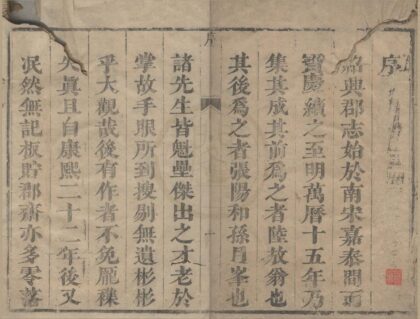 序
紹興郡志始於南宋嘉泰間
寶慶續之至明萬曆十五年乃
集其成其前爲之者陸放翁也
其後爲之者張陽和孫月峯也
諸先生皆魁壘傑出之才老於
掌故手眼所到搜剔無遺彬彬
乎大觀哉後有作者不免龐襍
失眞且自康熙二十二年後又
泯然無記板貯郡齋亦多零落
序